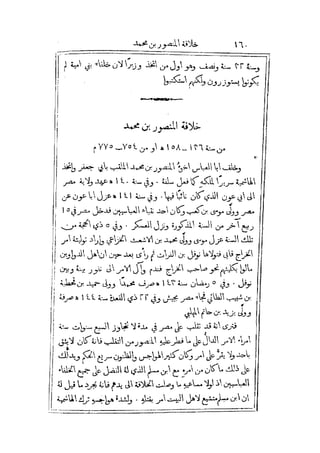 ١٦٠ خلافة المنصور بن محمد
وسنهُ ٢٣ سنة ونصف وهو اول من اتخذ وزيرًا لان خلفاء بني امية لم
يكونوا يستوزرون ولكنهم استكتبوا
خلافة المنصور بن محمد
من سنة ١٣٦ – ١٥٨ ه‍ او من ٧٥٤ – ٧٧٥ م
وخلف ابا العباس اخوهُ المنصور بن محمد الملقب بابي جعفر واتخذ
الهاشمية سريرًا لملكهِ كما فعل سلفهُ . وفي سنة ١٤٠ ه‍ عهد ولاية مصر
الى ابي عون الذي كان نائبًا فيها . وفي سنة ١٤١ ه‍ عزل ابا عون عن
مصر وولى موسى بن كعب وكان احد نقباء العباسيين فدخل مصر في ١٥
ربيع آخر من السنة المذكورة ونزل العسكر . وفي ٥ ذي الحجة من
تلك السنة عزل موسى وولى محمد بن الاشعث الخزاعي واراد تولية امر
الخراج فابى فتولاها نوفل بن الفرات ثم رأى بعد حين ان اهل الدواوين
مالوا بكليتهم نحو صاحب الخراج فندم وآل الامر الى نفور بينهُ وبين
نوفل . وفي ٥ رمضان سنة ١٤٣ ه‍ صرف محمدًا وولى حميد بن قحطبة
بن شبيب الطائي فجاء مصر بجيش وفي ٢٢ ذي القعدة سنة ١٤٤ ه‍ صرفهُ
وولى يزيد بن حاتم المهلبي
فترى انهُ قد تقلب على مصر في مدة لا تتجاوز السبع سنوات ستة
امراء الامر الدال على ما فطر عليهِ المنصور من التقلب فانهُ كان لا يثق
باحد ولا يقر على امر وكان كثير الهواجس والظنون سريع الحكم ويدلك
على ذلك ما كان من امره مع ابن مسلم الذي لهُ الفضل على جميع الخلفاء
العباسيين اذ لولا مساعيهِ ما وصلت الخلافة الى يدهم فانهُ بمجرد ما قيل لهُ
ان ابن مسلم متشيع لاهل البيت امر بقتلهِ . ولشدة هواجسهِ ترك الهاشمية